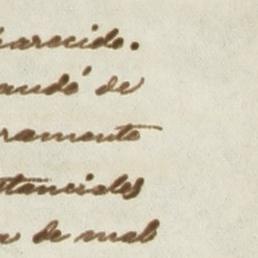 parecido.
ando de
ramente
stanciales
a de mal